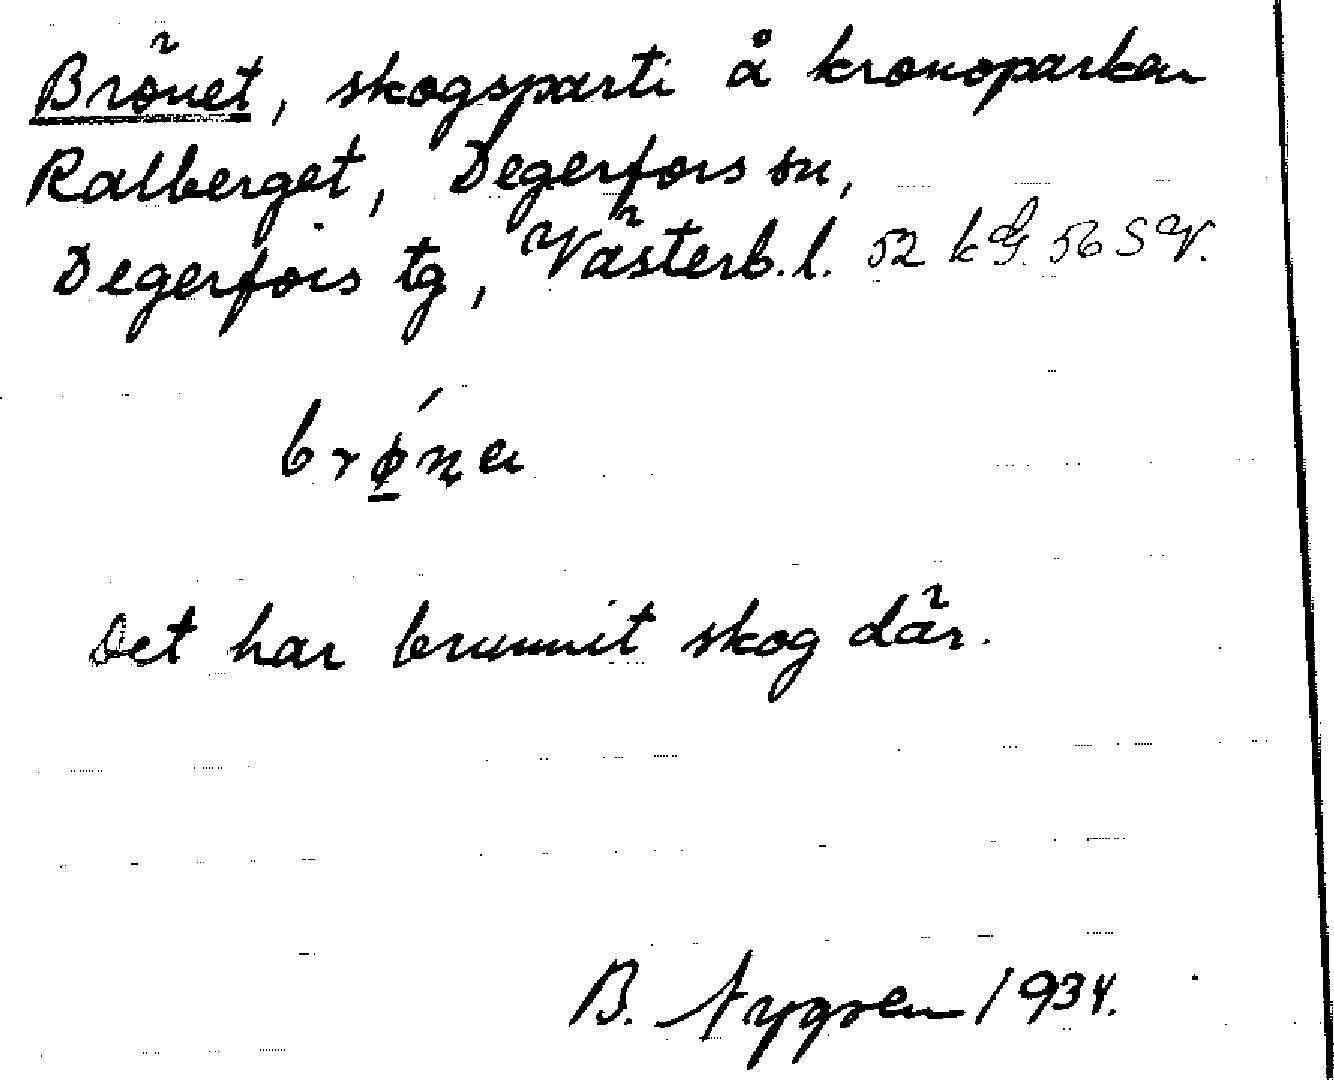 Brönet, skogsparti å kronoparken
Ralberget, Degerfors sn,
Degerfors tg, Västerb.l. 52 kG 56 SV.
brǿ̱ṇa
Det har brunnit skog där.
B. Nygren 1934.